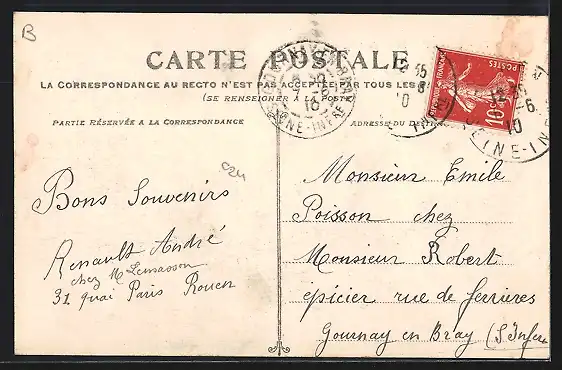 B
CARTE POSTALE
LA CORRESPONDANCE AU RECTO N'EST PAS ACCEPTÉE PAR TOUS LES
(SE RENSEIGNER A LA POSTE)
PARTIE RÉSERVÉE A LA CORRESPONDANCE
ADRESSE DU
GOURNAY-EN-BRAY
SEINE-INFRE
10
RÉPUBLIQUE FRANÇAISE
10c
INE-INF
10
Bons Souvenirs
Renault André
chez M Lemasson
31 quai Paris Rouen
Monsieur Emile
Poisson chez
Monsieur Robert
épicier rue de ferrières
Gournay en Bray (S. Infere